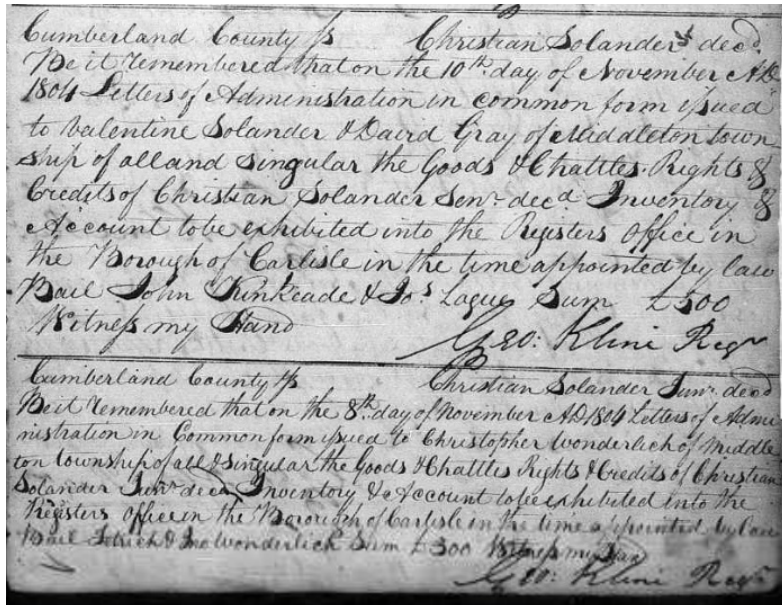 Cumberland County ss Christian Solander's decd.
Be it remembered that on the 10th day of November AD
1804 Letters of Administration in common form issued
to Valentine Solander & David Gray of Middleton town
ship of all and singular the Goods & Chattles Rights &
Credits of Christian Solander Senr decd Inventory &
Account to be exhibited into the Registers Office in
the Borough of Carlisle in the time appointed by law
Bail John Kinkeade & Jos Lague Sum £500
Witness my Hand
Geo: Kline Regr
Cumberland County ss Christian Solander Junr decd
Be it remembered that on the 8th day of November AD 1804 Letters of Admi
nistration in Common form issued to Christopher Wonderlich of Middle
ton township of all & singular the Goods & Chattles Rights & Credits of Christian
Solander Junr decd Inventory & Account to be exhibited into the
Registers Office in the Borough of Carlisle in the time appointed by law
Bail & Jno Wonderlich Sum £300 Witness my Han
Geo: Kline Regr